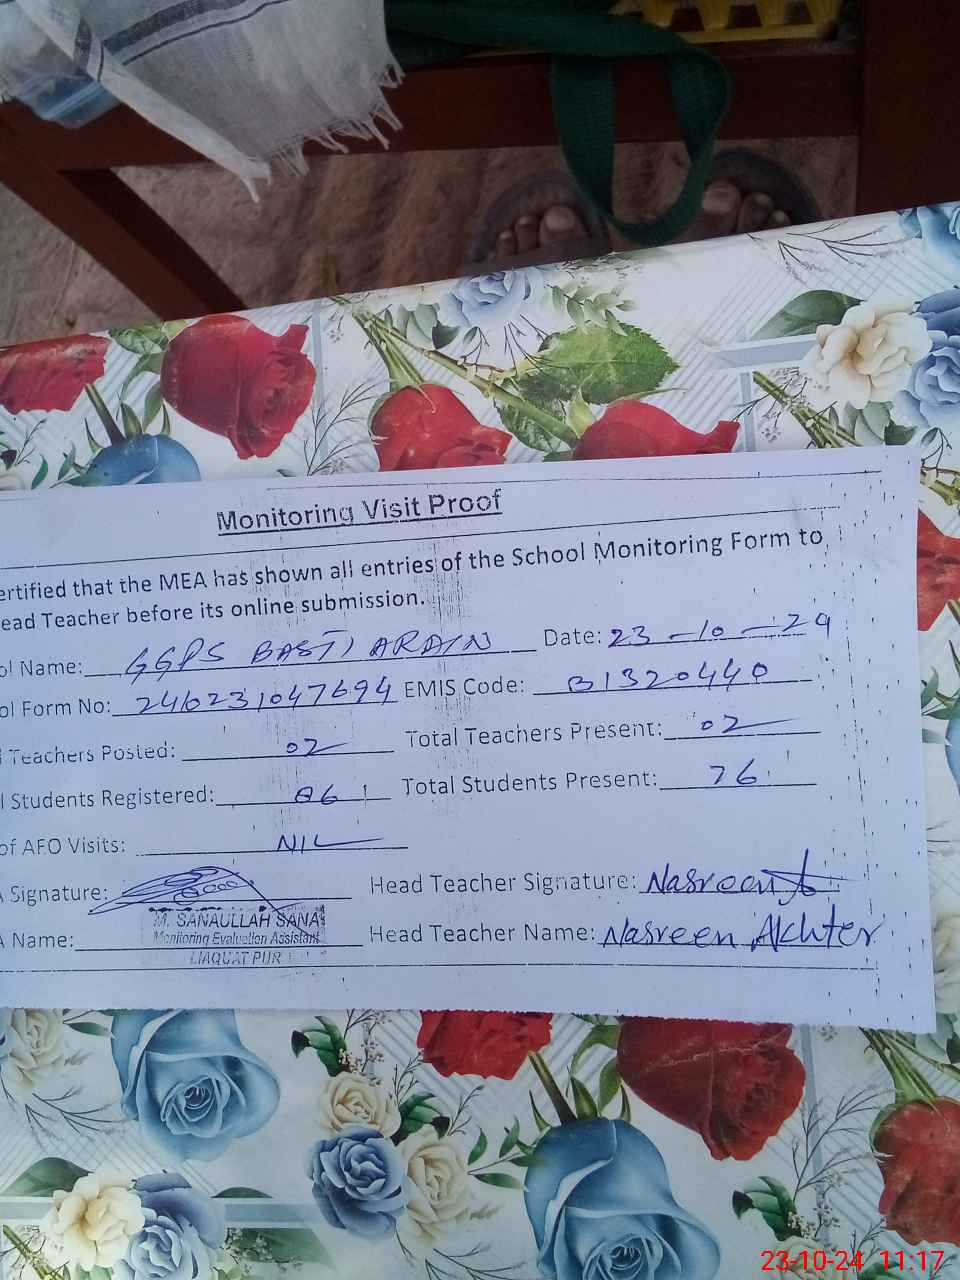 Monitoring Visit Proof
ertified that the MEA has shown all entries of the School Monitoring Form to
ead Teacher before its online submission.
ol Name: GGPS BASTI ARAIN Date: 23-10-24
ol Form No: 246231047694 EMIS Code: 31320440
Teachers Posted: 02 Total Teachers Present: 02
l Students Registered: 86 Total Students Present: 76
of AFO Visits: NIL
Signature: Head Teacher Signature: Nasreen A
Name: M. SANAULLAH SANA Head Teacher Name: Nasreen Akhter
Monitoring Evaluation Assistant
LIAQUAT PUR
23-10-24 11:17